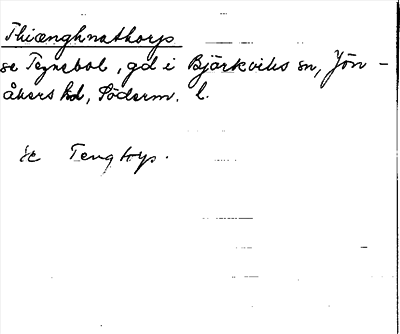 Thiænghnathorp
se Tegnebol, gd i Bjärkviks sn, Jön-
åkers hd, Söderm. l.
se Tengtorp.